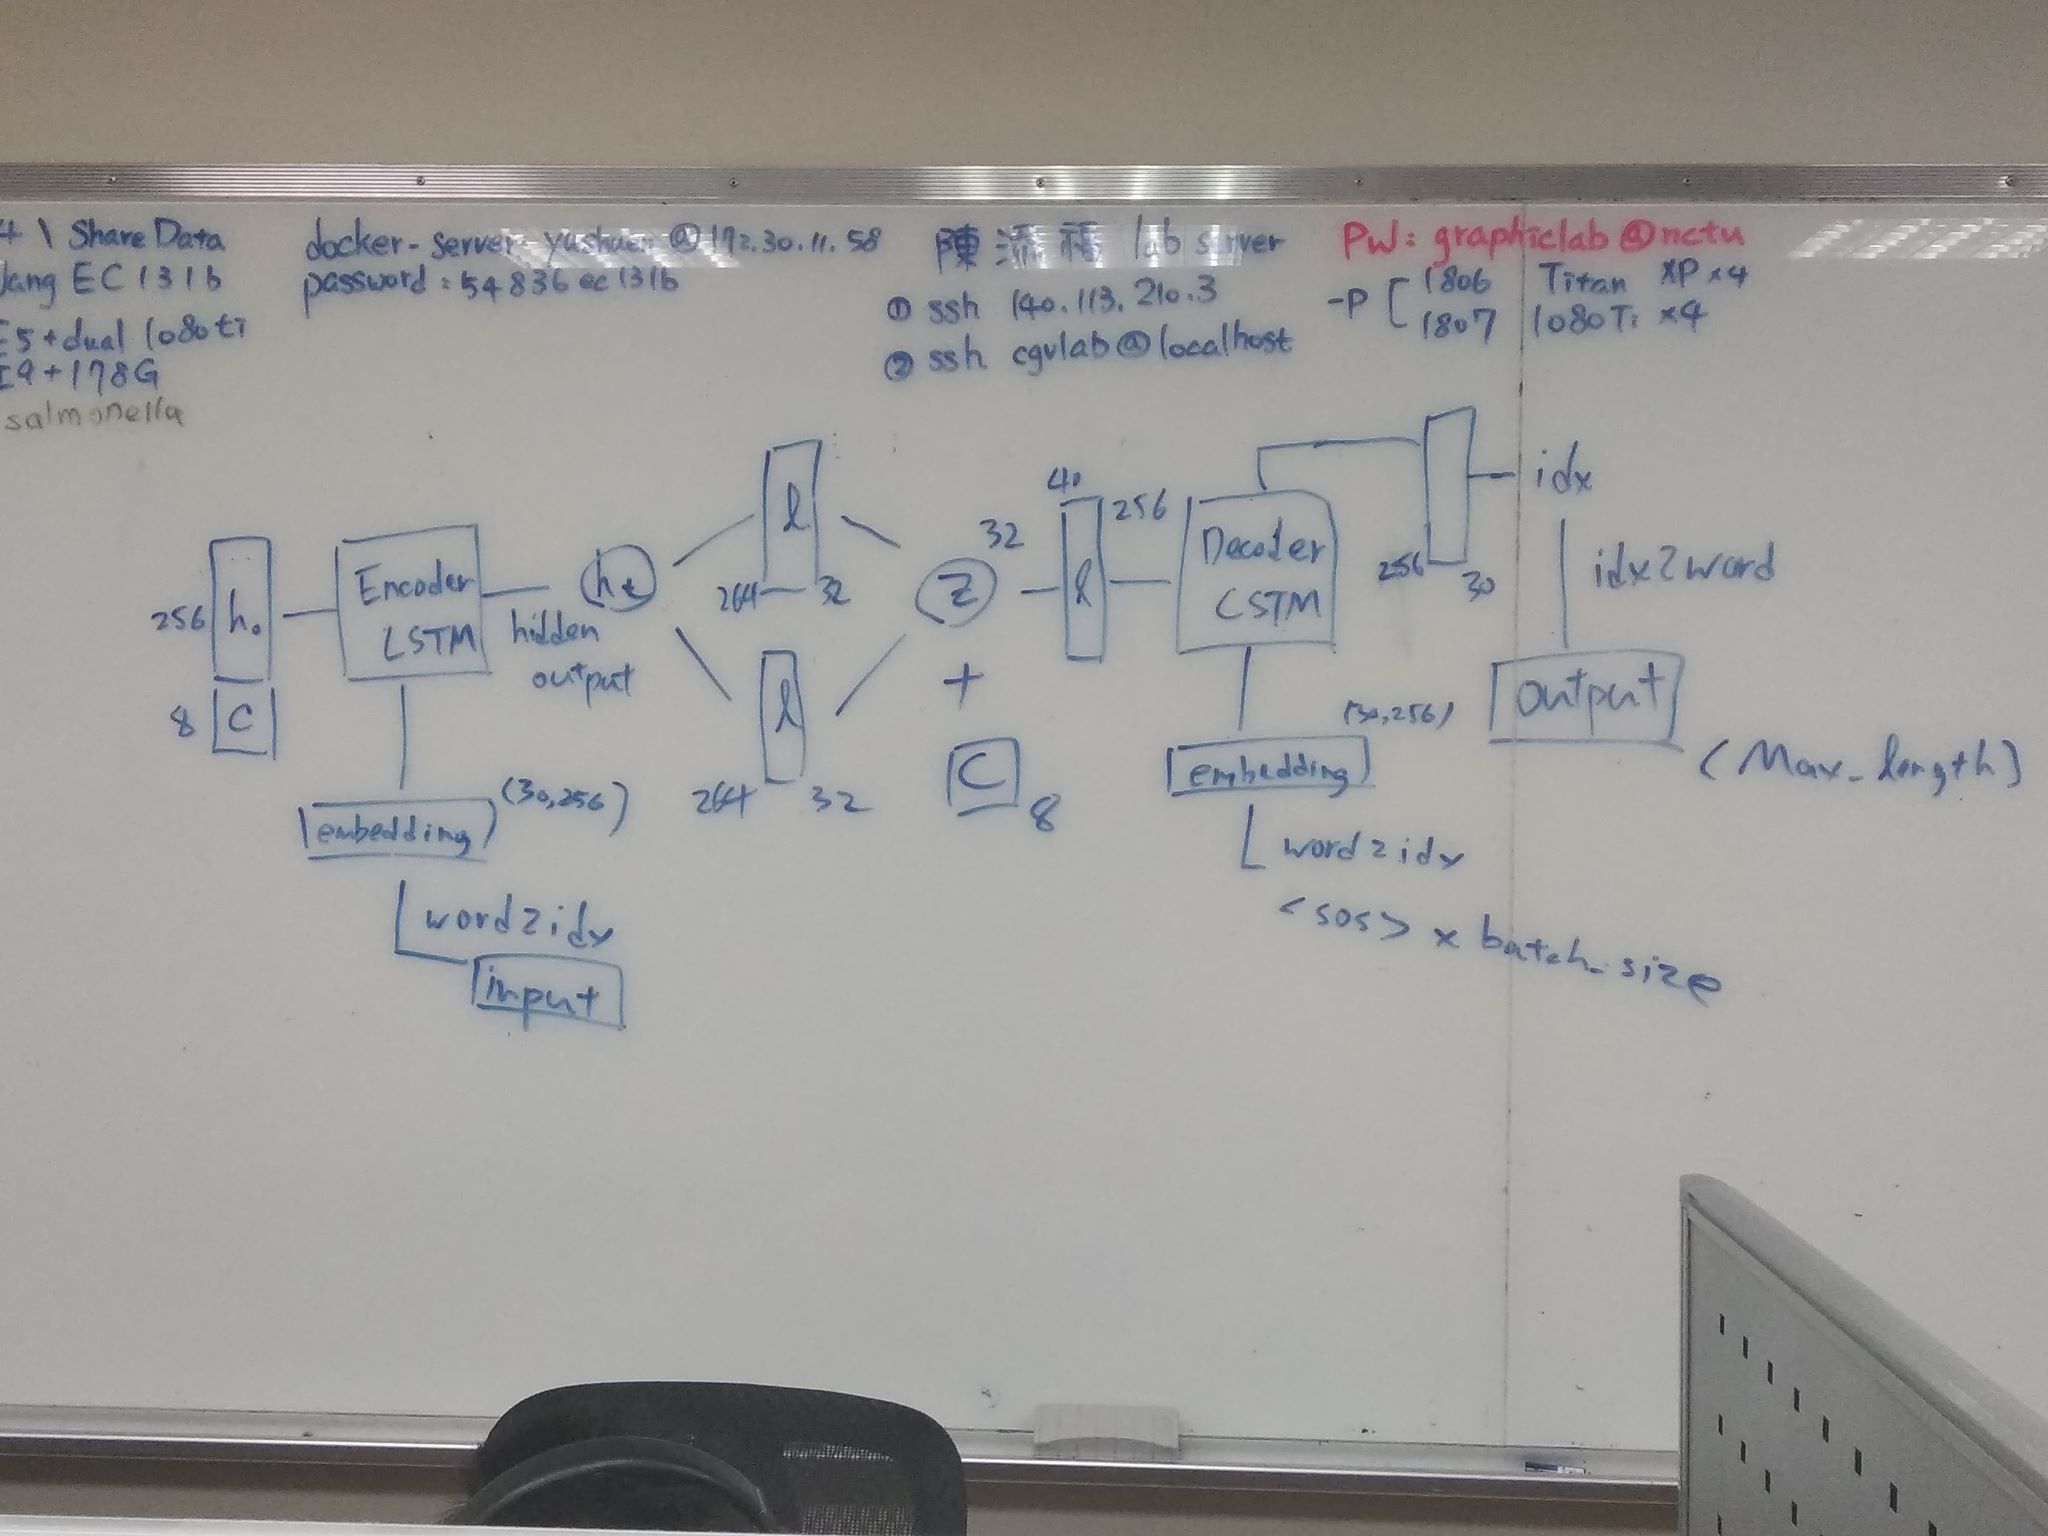 4 \ Share Data
Jang EC131b
E5+dual 1080ti
I9+178G
salmonella
docker-server @172.30.11.58
password: 54836ec131b
陳添福 lab server
① ssh 140.113.210.3
② ssh cgvlab@localhost
PW: graphiclab@nctu
-P [ 1806 Titan XP x4
1807 1080Ti x4
256 h0
8 C
Encoder
LSTM
hidden
output
ht
embedding (30,256)
word2idx
input
l
264 32
l
264 32
Z 32
+
C 8
40
l
256
Decoder
LSTM
embedding (30,256)
word2idx
<SOS> x batch_size
256 30
idx
idx2word
output
(Max_length)